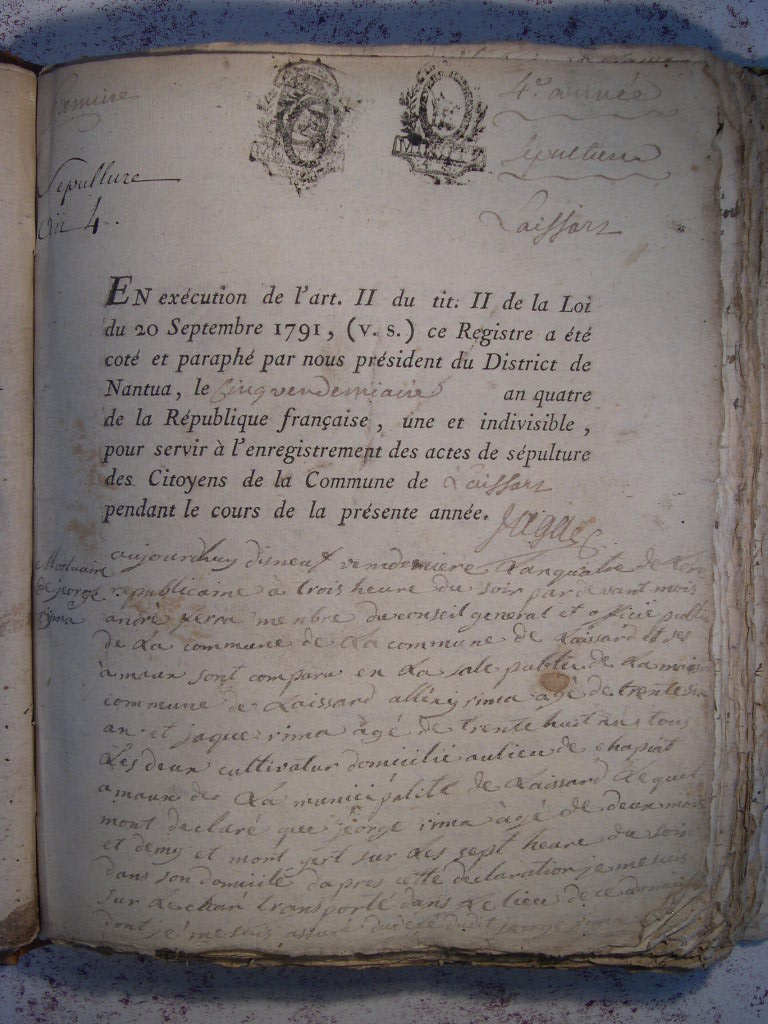 4e année
Sepulture
Sépulture
an 4
Laissart
EN exécution de l'art. II du tit. II de la Loi
du 20 Septembre 1791, (v. s.) ce Registre a été
coté et paraphé par nous président du District de
Nantua, le cinq vendemiaire an quatre
de la République française, une et indivisible,
pour servir à l'enregistrement des actes de sépulture
des Citoyens de la Commune de Laissart
pendant le cours de la présente année.
Mortuaire
de jeorge
rima
aujourdhuy disneuf vendemiere Lanquatre de Lere
republicaine a trois heure du soir par devant mois
andré menbre du conseil general et officié public
de La commune de La commune de Laissard et ses
amaux sont comparu en La sale publie de La maison
commune de Laissard rima agé de trente
an et jaque rima agé de trente huit ans tous
Les deux cultivatur domicilié au lieu de chapiat
amaux de La municipalité de Laissard Lequel
mont declaré que jeorge rima agé de deux mois
et demy et mort yert sur Les sept heure du soir
dans son domicile dapres cette declaration je me suis
sur Le chan transporté dans Le lieu de ce domicile
dont je me suis assuré du dudit jeorge rima